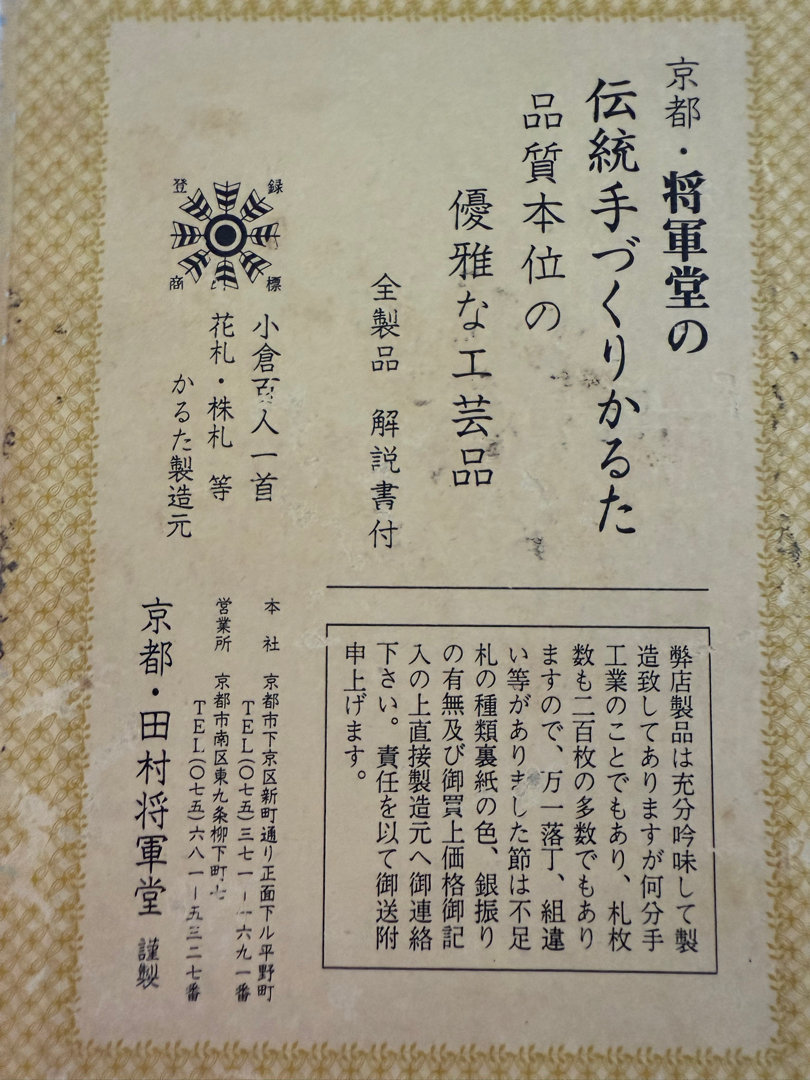 京都・将軍堂の
伝統手づくりかるた
品質本位の
優雅な工芸品
全製品 解説書付
登録商標
小倉百人一首
花札・株札 等
かるた製造元
弊店製品は充分吟味して製
造致してありますが何分手
工業のことでもあり、札枚
数も二百枚の多数でもあり
ますので、万一落丁、組違
い等がありました節は不足
札の種類裏紙の色、銀振り
の有無及び御買上価格御記
入の上直接製造元へ御連絡
下さい。責任を以て御送附
申上げます。
本社 京都市下京区新町通り正面下ル平野町
TEL(〇七五)三七一ー一六九一番
営業所 京都市南区東九条柳下町七
TEL(〇七五)六八一ー五三二七番
京都・田村将軍堂 謹製